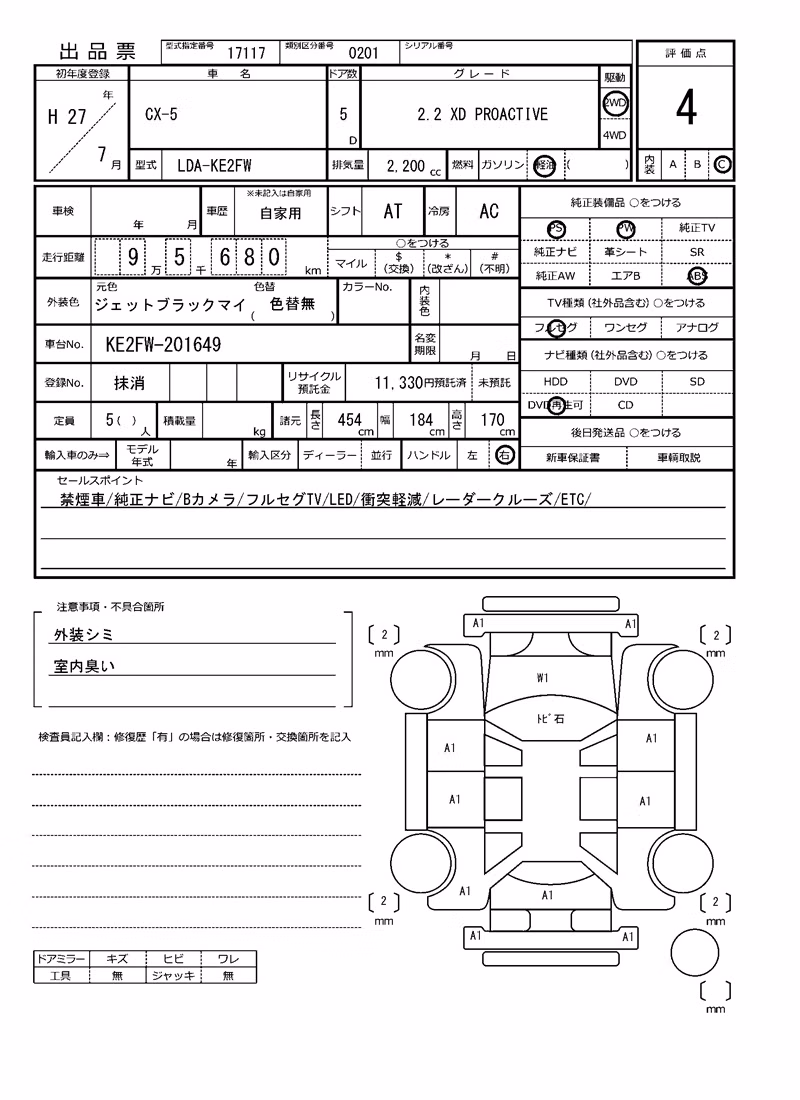 出品票
型式指定番号 17117 類別区分番号 0201 シリアル番号
評価点
4
内装 A B C
初年度登録 車名 ドア数 グレード 駆動
H 27 年 7 月 CX-5 5 D 2.2 XD PROACTIVE 2WD 4WD
型式 LDA-KE2FW 排気量 2,200 cc 燃料 ガソリン 軽油 ( )
車検 年 月 車歴 ※未記入は自家用 自家用 シフト AT 冷房 AC
走行距離 9 万 5 千 6 8 0 km
○をつける
マイル $ (交換) * (改ざん) # (不明)
外装色 元色 ジェットブラックマイ 色替 ( 色替無 ) カラーNo. 内装色
車台No. KE2FW-201649 名変期限 月 日
登録No. 抹消 リサイクル預託金 11,330円預託済 未預託
定員 5 ( ) 人 積載量 kg 諸元 長さ 454 cm 幅 184 cm 高さ 170 cm
輸入車のみ⇒ モデル年式 年 輸入区分 ディーラー 並行 ハンドル 左 右
純正装備品 ○をつける
PS PW 純正TV
純正ナビ 革シート SR
純正AW エアB ABS
TV種類(社外品含む) ○をつける
フルセグ ワンセグ アナログ
ナビ種類(社外品含む) ○をつける
HDD DVD SD
DVD再生可 CD
後日発送品 ○をつける
新車保証書 車輌取説
セールスポイント
禁煙車/純正ナビ/Bカメラ/フルセグTV/LED/衝突軽減/レーダークルーズ/ETC/
注意事項・不具合箇所
外装シミ
室内臭い
検査員記入欄：修復歴「有」の場合は修復箇所・交換箇所を記入
ドアミラー キズ ヒビ ワレ
工具 無 ジャッキ 無
A1 A1
2 mm 2 mm
W1
ﾄﾋﾞ石
A1 A1
A1 A1
A1 A1
2 mm 2 mm
A1 A1
mm